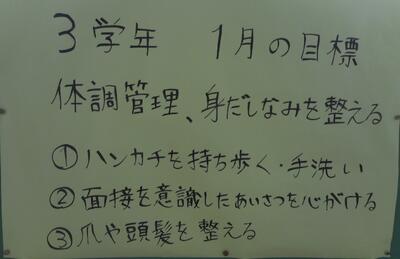 3学年 1月の目標
体調管理、身だしなみを整える
①ハンカチを持ち歩く・手洗い
②面接を意識したあいさつを心がける
③爪や頭髪を整える